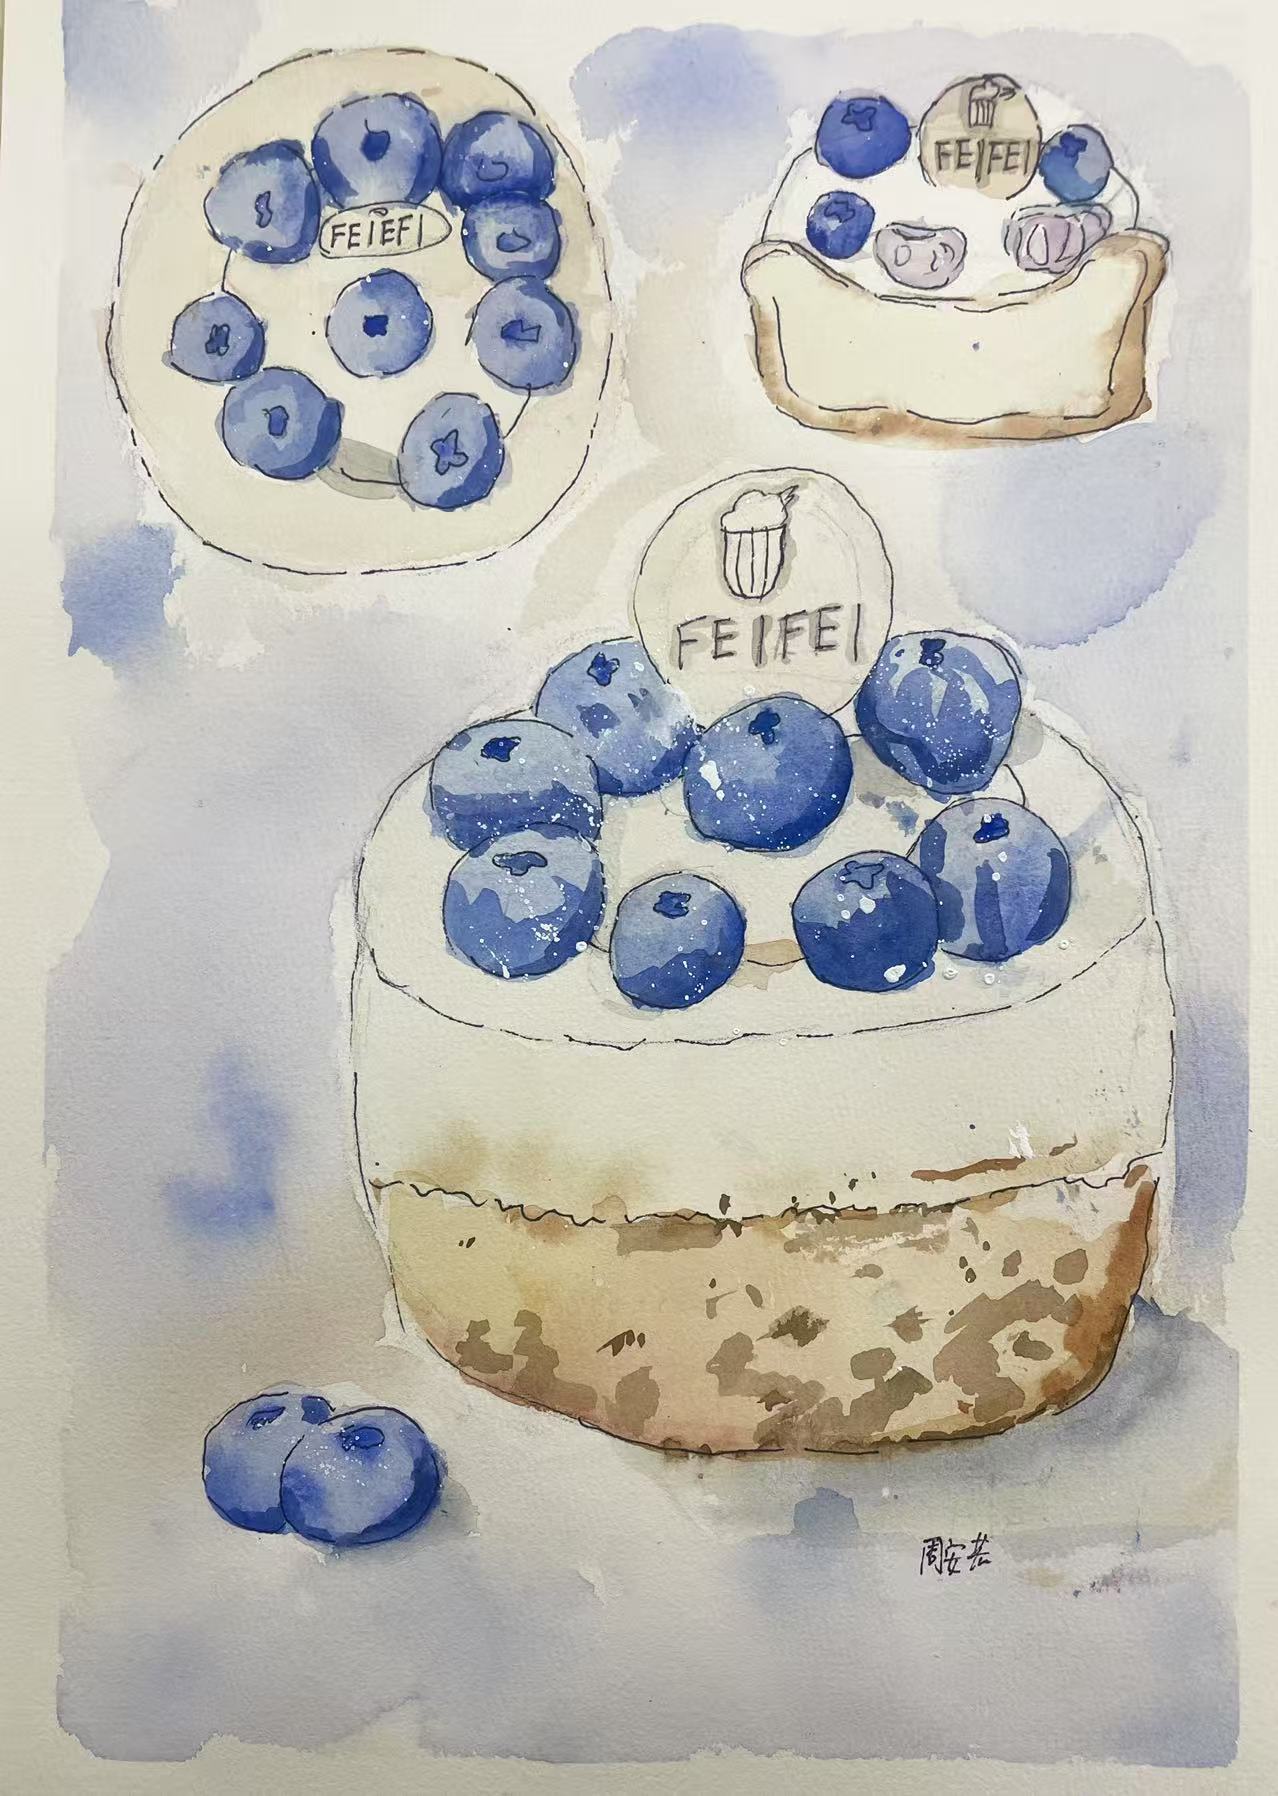 FEIEFI
FEIFEI
FEIFEI
周安